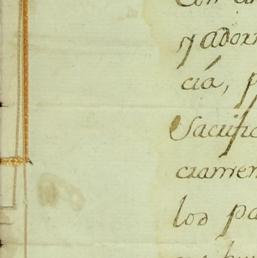 y ador
cia, p
Sacrifi
cramen
los pa